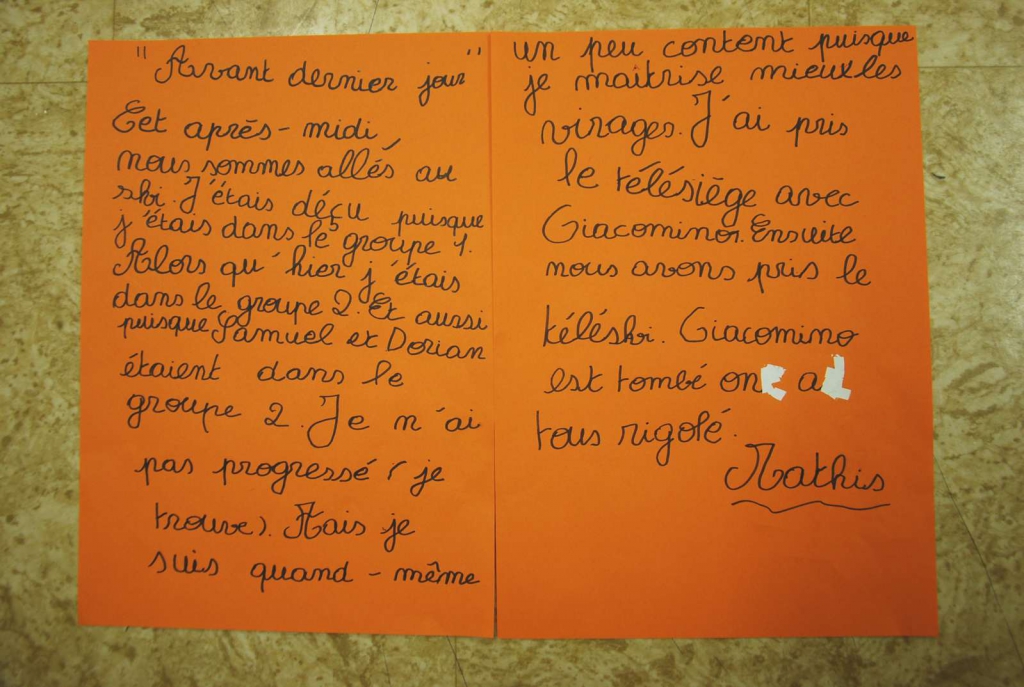 " Avant dernier jour "
Cet après-midi
nous sommes allés au
ski. J'étais déçu puisque
j'étais dans le groupe 1.
Alors qu'hier j'étais
dans le groupe 2. Et aussi
puisque Samuel et Dorian
étaient dans le
groupe 2. Je n'ai
pas progressé (je
trouve). Mais je
suis quand-même
un peu content puisque
je maitrise mieux les
virages. J'ai pris
le télésiège avec
Giacomino. Ensuite
nous avons pris le
téléski. Giacomino
est tombé on a
tous rigolé.
Mathis